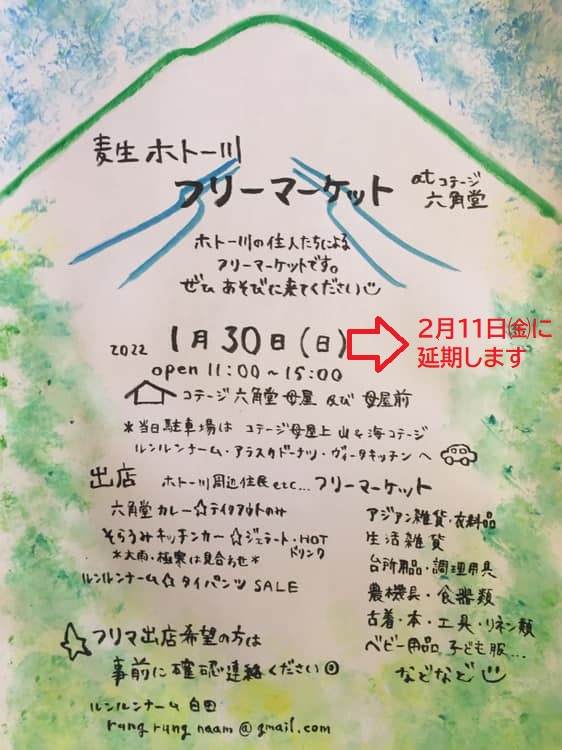 麦生 ホトー川
フリーマーケット
at コテージ
六角堂
ホトー川の住人たちによる
フリーマーケットです。
ぜひ あそびに来てください
2022 1月30日(日)
2月11日㈮に
延期します
open 11:00～15:00
コテージ 六角堂 母屋 及び 母屋前
*当日駐車場は コテージ母屋上 山&海コテージ
ルンルンナーム・アラスカドーナツ・ヴィータキッチン へ
出店 ホトー川周辺住民etc... フリーマーケット
六角堂カレー☆テイクアウトのみ
そらうみキッチンカー☆ジェラート・HOT
ドリンク
*大雨・極寒は見合わせ*
ルンルンナーム☆タイパンツ SALE
アジアン雑貨・衣料品
生活雑貨
台所用品・調理用具
農機具・食器類
古着・本・工具・リネン類
ベビー用品、子ども服...
などなど
☆フリマ出店希望の方は
事前に確認連絡ください
ルンルンナーム 白田
rung rung naam @ gmail.com